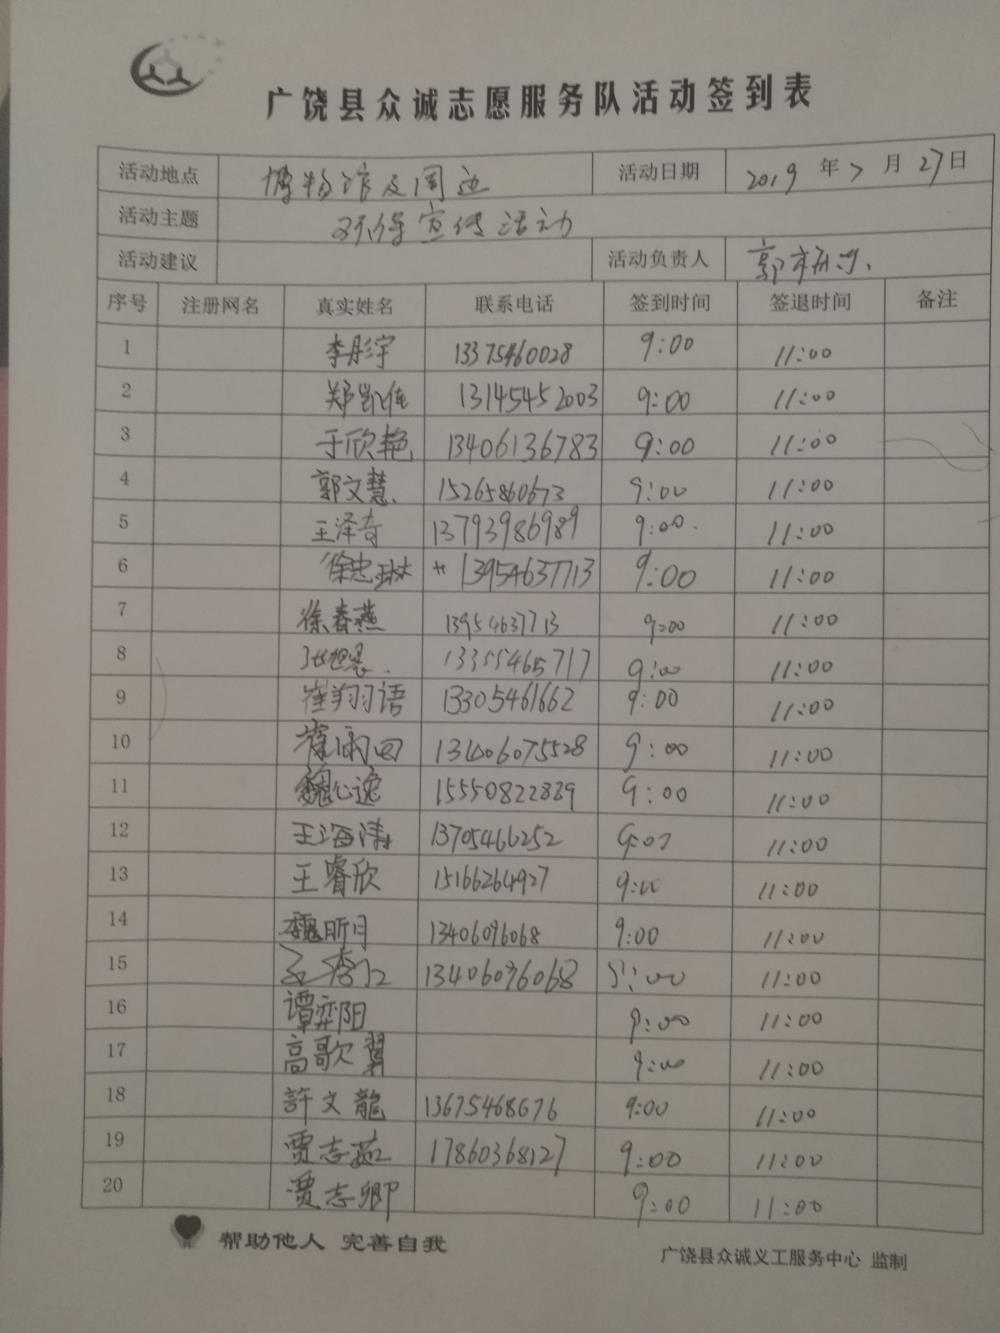 广饶县众诚志愿服务队活动签到表
活动地点 博物馆及周边 活动日期 2019 年 7 月 27 日
活动主题 环保宣传活动
活动建议 活动负责人 郭
序号 注册网名 真实姓名 联系电话 签到时间 签退时间 备注
1 李彤宇 13375460028 9:00 11:00
2 郑凯佳 13145452003 9:00 11:00
3 于欣艳 13406136783 9:00 11:00
4 郭文慧 15265860673 9:00 11:00
5 王泽奇 13793986989 9:00 11:00
6 徐忠琳 13954637713 9:00 11:00
7 徐春燕 13954637713 9:00 11:00
8 13355465717 9:00 11:00
9 崔翔语 13305461662 9:00 11:00
10 崔雨 9:00 11:00
11 魏心逸 15550822889 9:00 11:00
12 王海涛 13705466252 9:00 11:00
13 王睿欣 15166264927 9:00 11:00
14 魏昕月 13406096068 9:00 11:00
15 13406096068 9:00 11:00
16 谭弈阳 9:00 11:00
17 高歌翼 9:00 11:00
18 許文龍 13675468676 9:00 11:00
19 贾志茹 17860368127 9:00 11:00
20 贾志卿 9:00 11:00
帮助他人 完善自我
广饶县众诚义工服务中心 监制